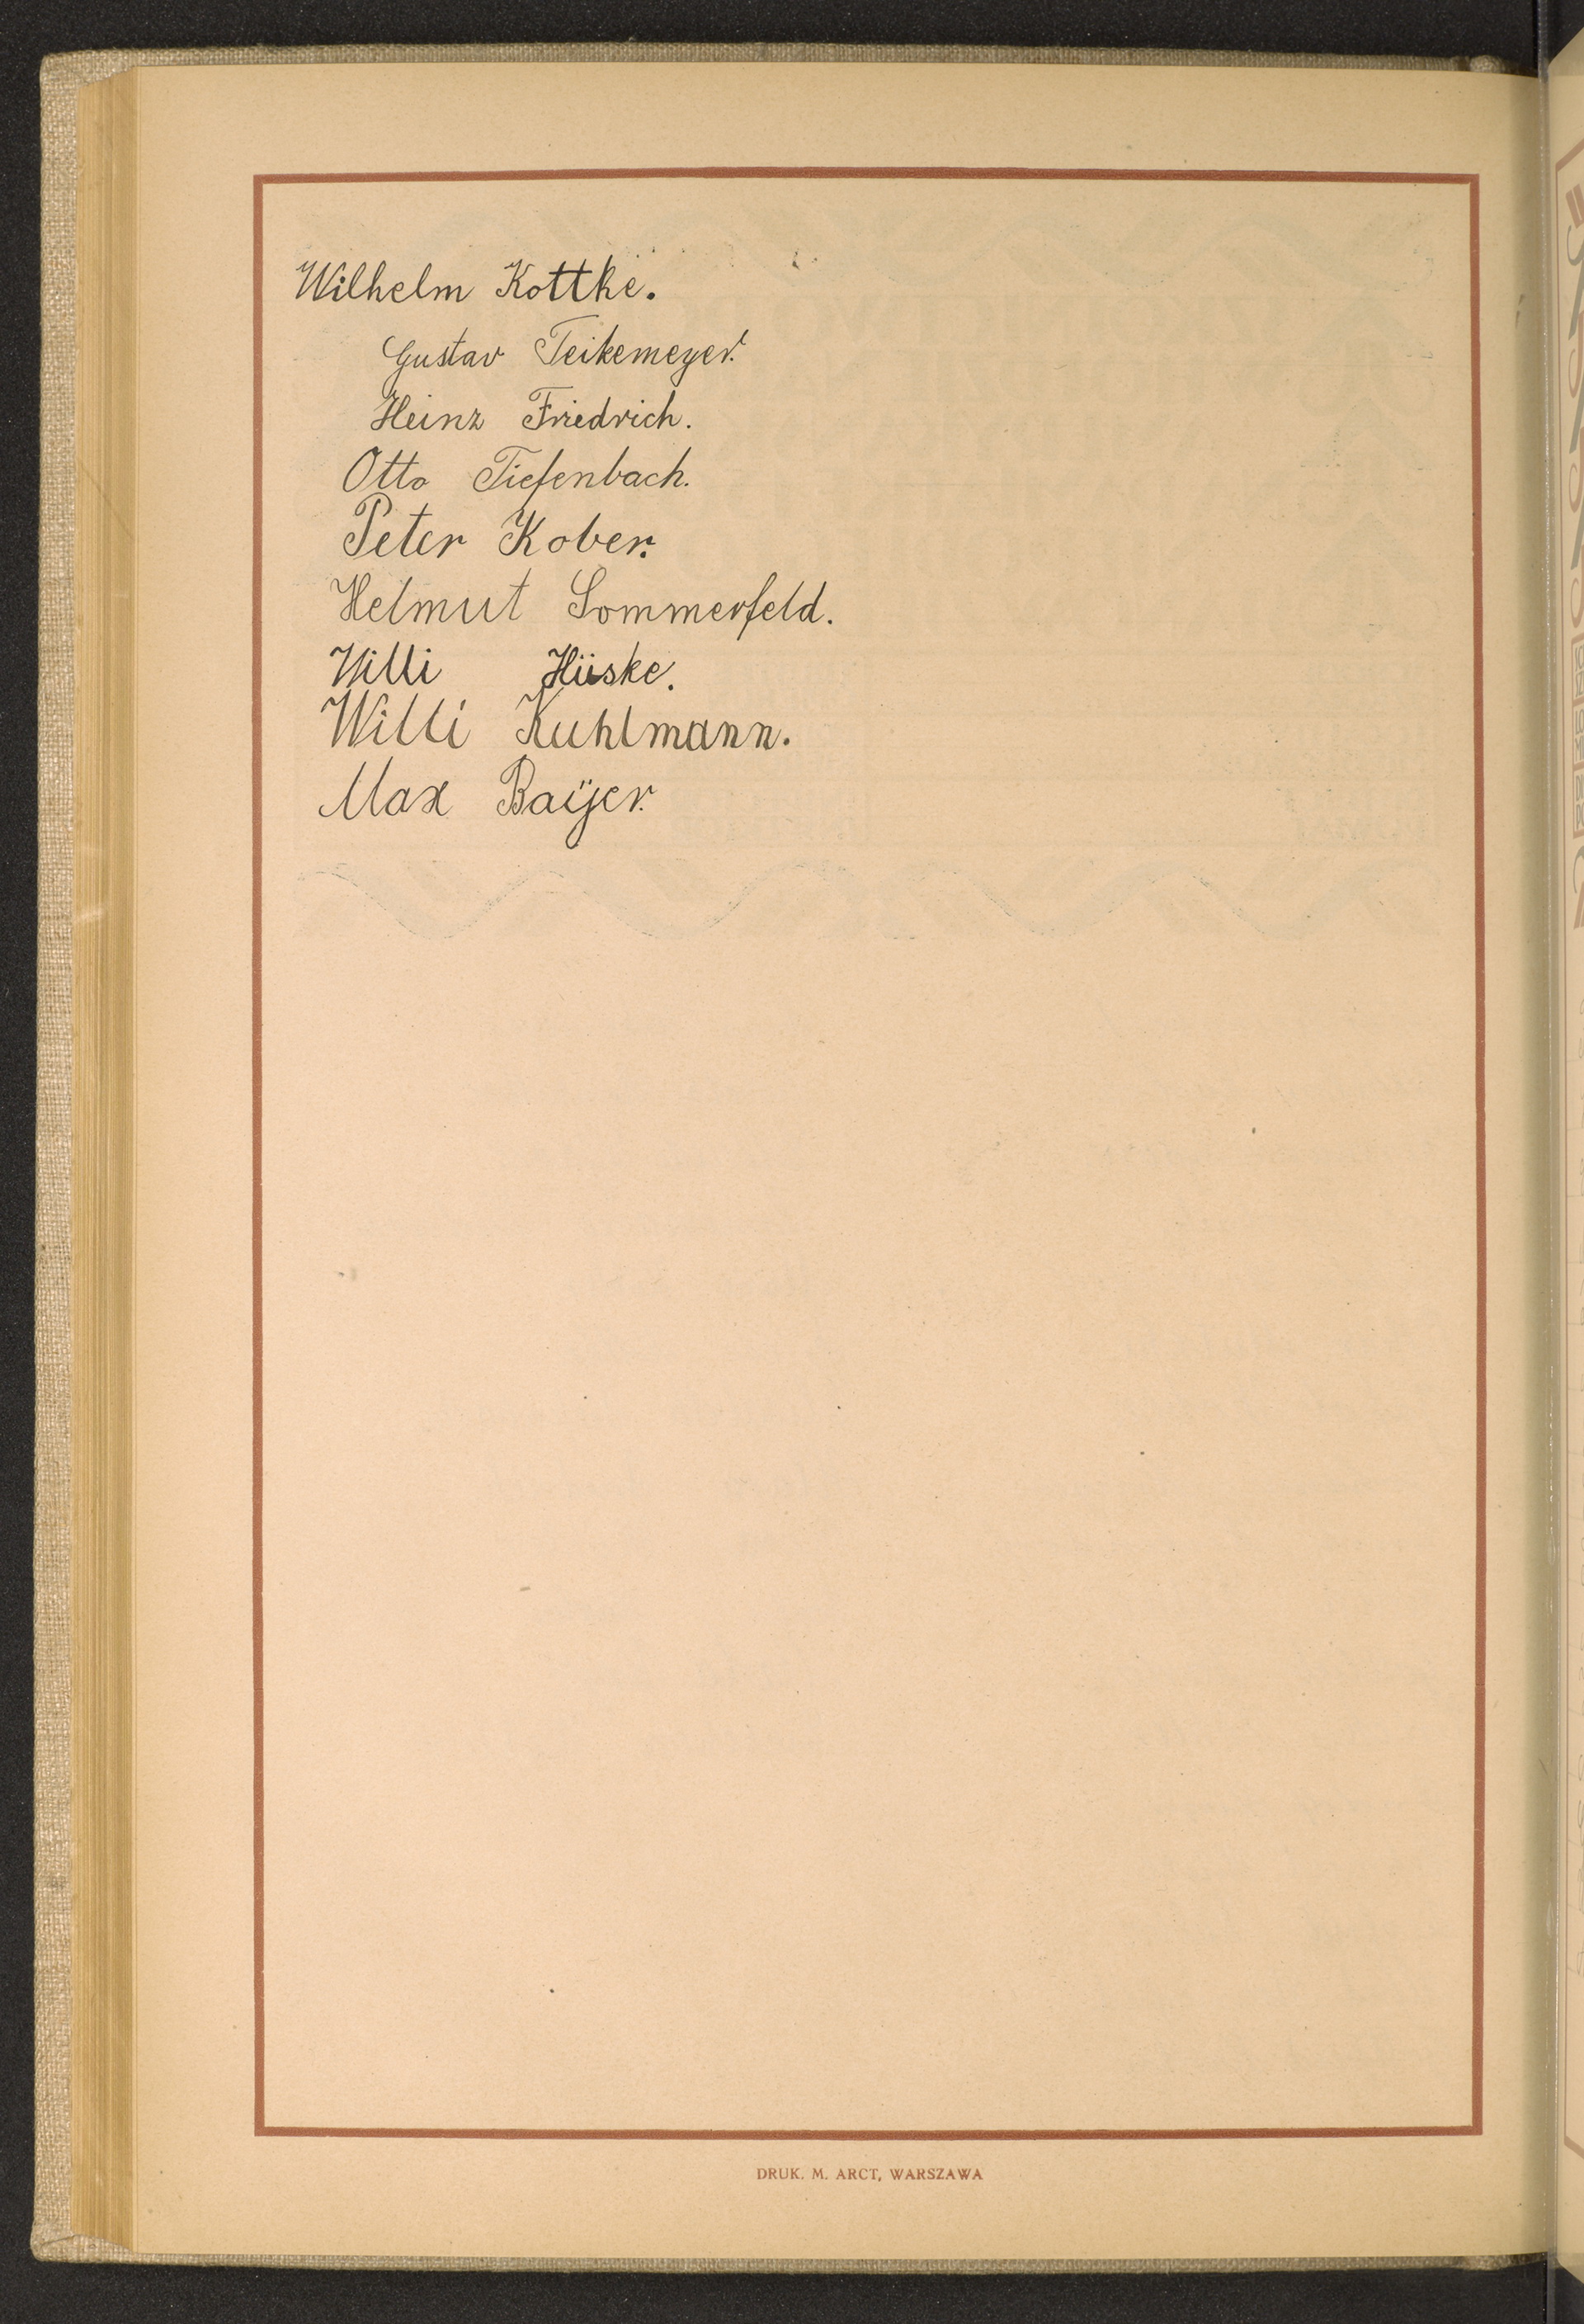 Wilhelm Kottke.
Gustav Teikemeyer.
Heinz Friedrich.
Otto Tiefenbach.
Peter Kober.
Helmut Sommerfeld.
Willi Hüske.
Willi Kuhlmann.
Max Baÿer.
DRUK. M. ARCT, WARSZAWA